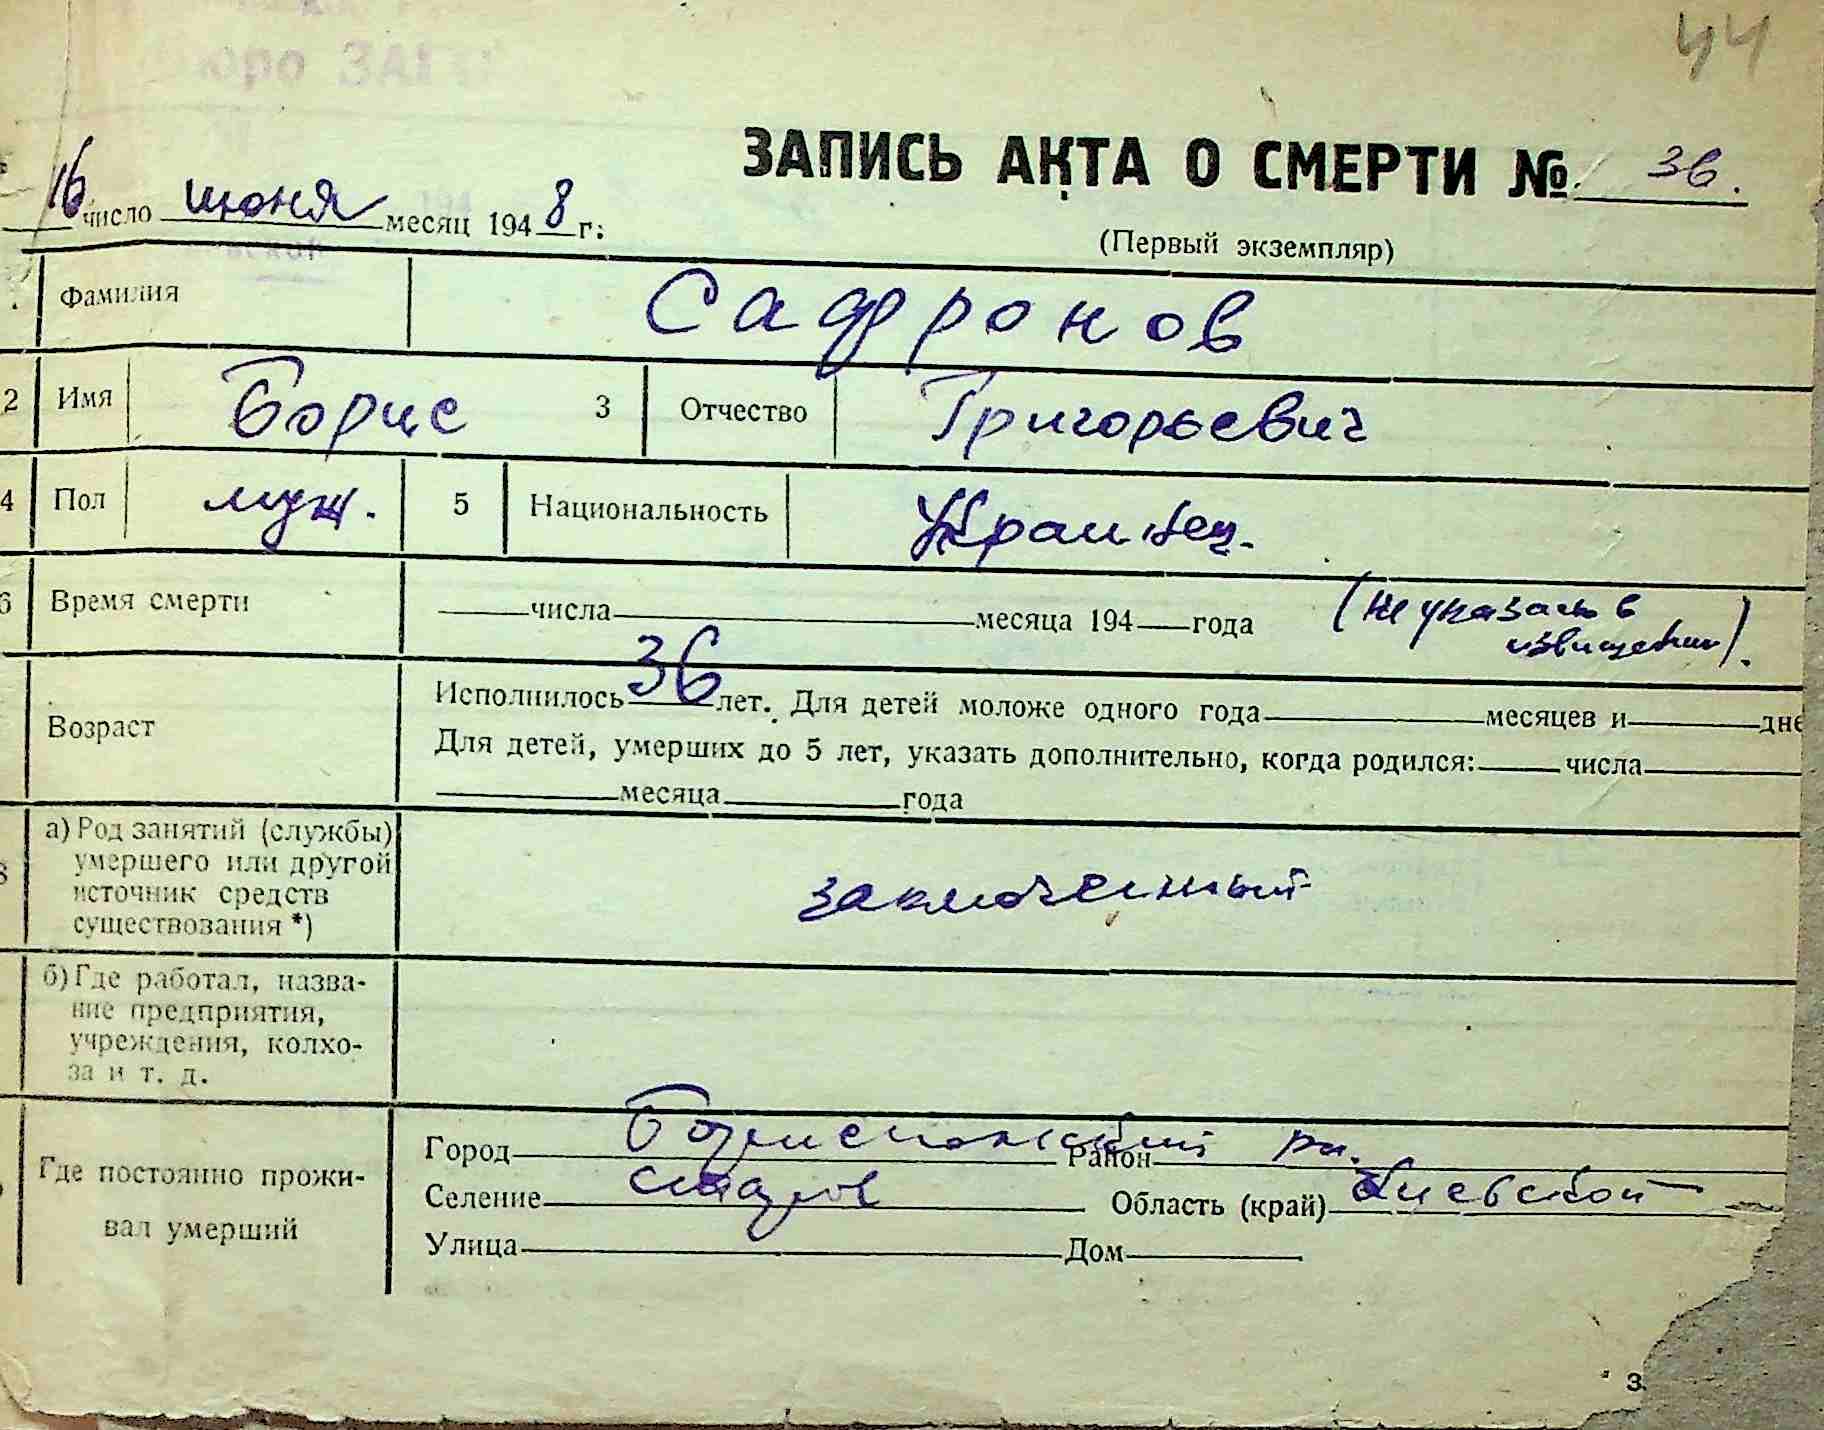 44
бюро ЗАГС
ЗАПИСЬ АКТА О СМЕРТИ № 36.
16 число июня месяц 1948 г.
(Первый экземпляр)
Фамилия Сафронов
2 Имя Борис 3 Отчество Григорьевич
4 Пол муж. 5 Национальность Украинец.
6 Время смерти ___числа___месяца 194__года (не указано в
извещении).
Исполнилось 36 лет. Для детей моложе одного года___месяцев и___дне
Возраст
Для детей, умерших до 5 лет, указать дополнительно, когда родился:___числа___
___месяца___года
8 а) Род занятий (службы)
умершего или другой
источник средств
существования *)
заключенный
б) Где работал, назва-
ние предприятия,
учреждения, колхо-
за и т. д.
Где постоянно прожи-
вал умерший
Город Район ри.
Селение Область (край) Киевской
Улица Дом
З.